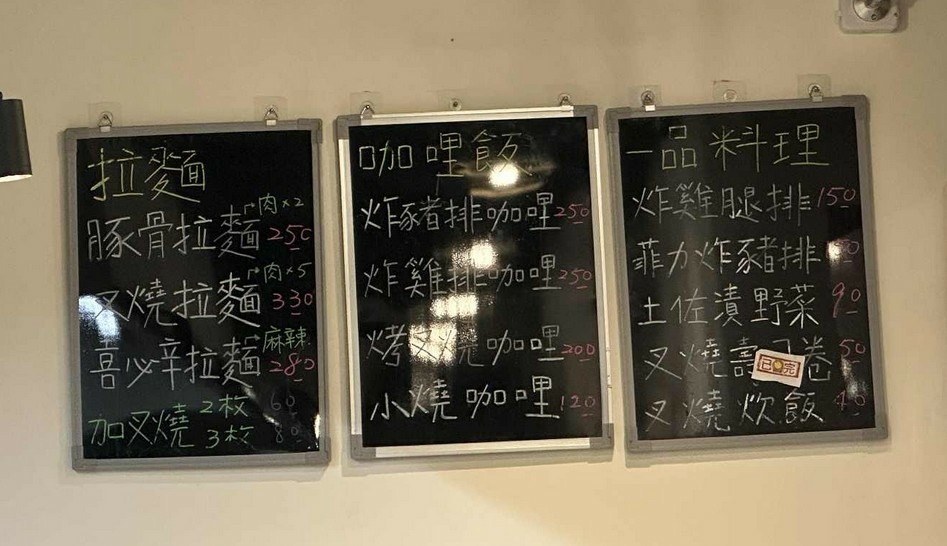 拉麵
肉×2
豚骨拉麵 250
肉×5
叉燒拉麵 330
麻辣
喜必辛拉麵 280
加叉燒 2枚 60
3枚 80
咖哩飯
炸豬排咖哩 250
炸雞排咖哩 250
烤叉燒咖哩 200
小燒咖哩 120
一品料理
炸雞腿排 150
菲力炸豬排
土佐漬野菜 90
叉燒壽 卷 50
已 完
叉燒炊飯 40